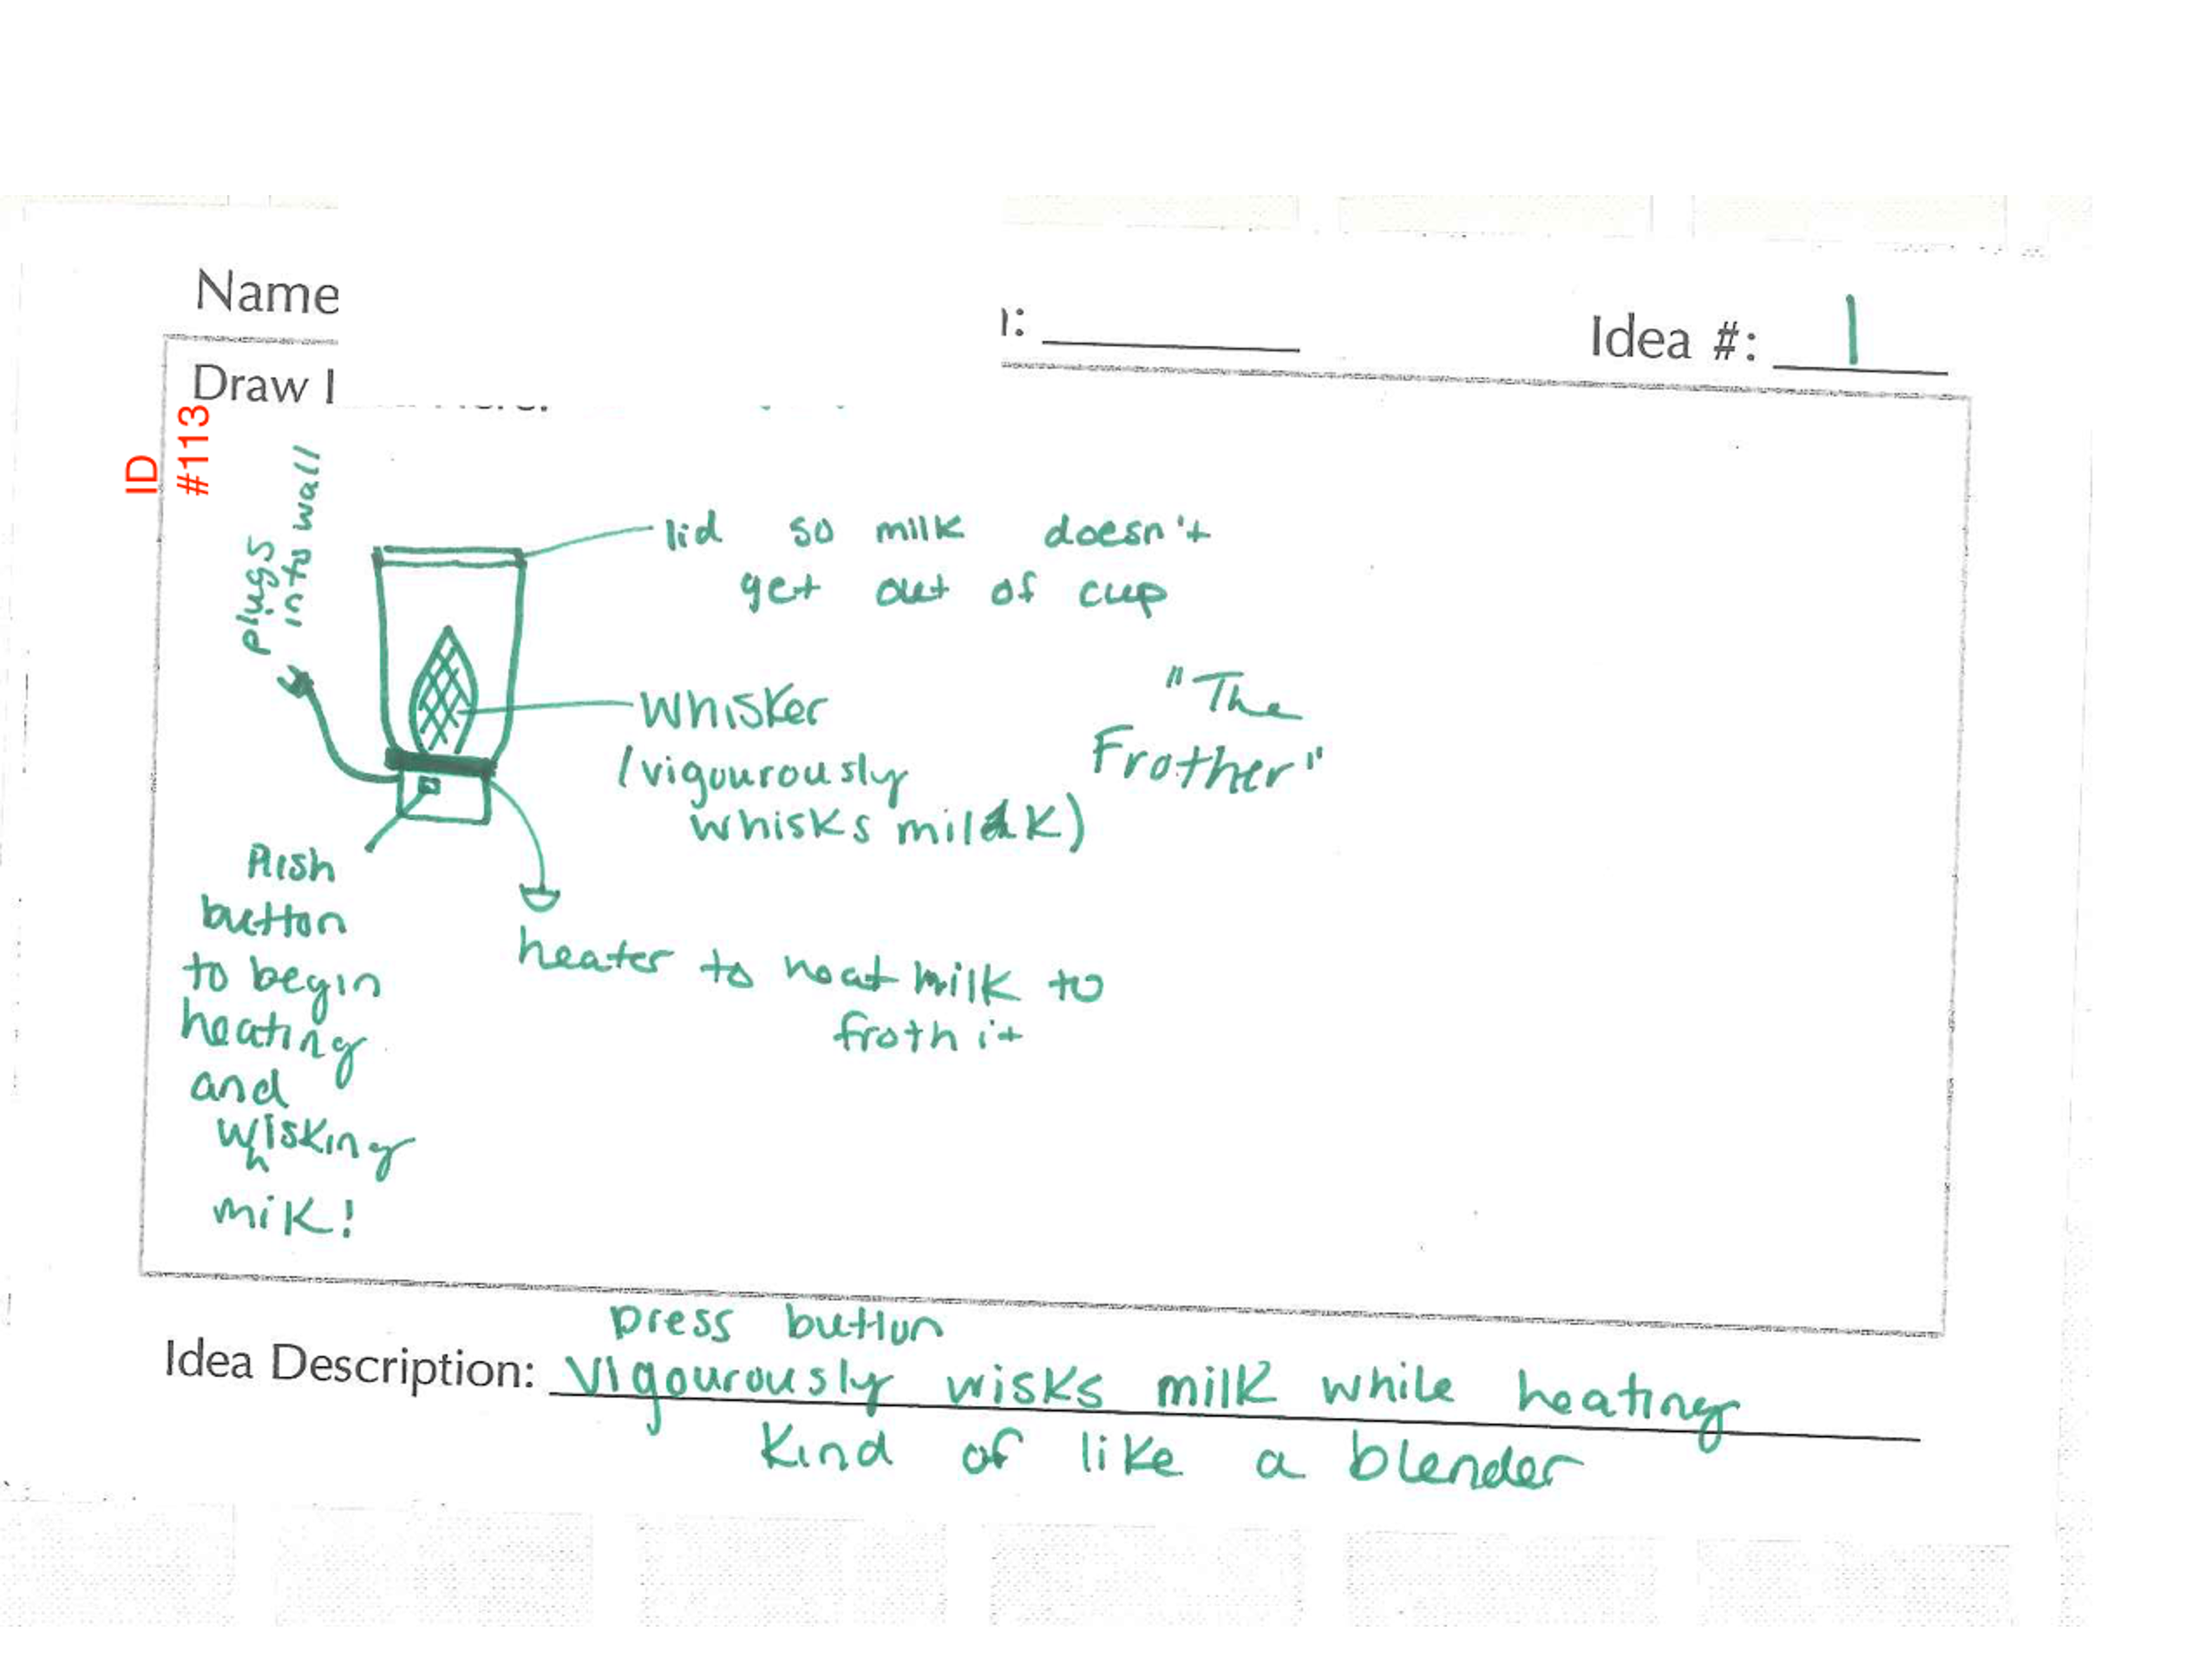 Name
ı: Idea #: 1
Draw I
ID
#113
plugs
into wall
lid so milk doesn't
get out of cup
whisker
(vigourously
whisks milk)
"The
Frother"
Push
button
to begin
heating
and
whisking
mik!
heater to heat milk to
froth it
press button
Idea Description: vigourously wisks milk while heating
kind of like a blender